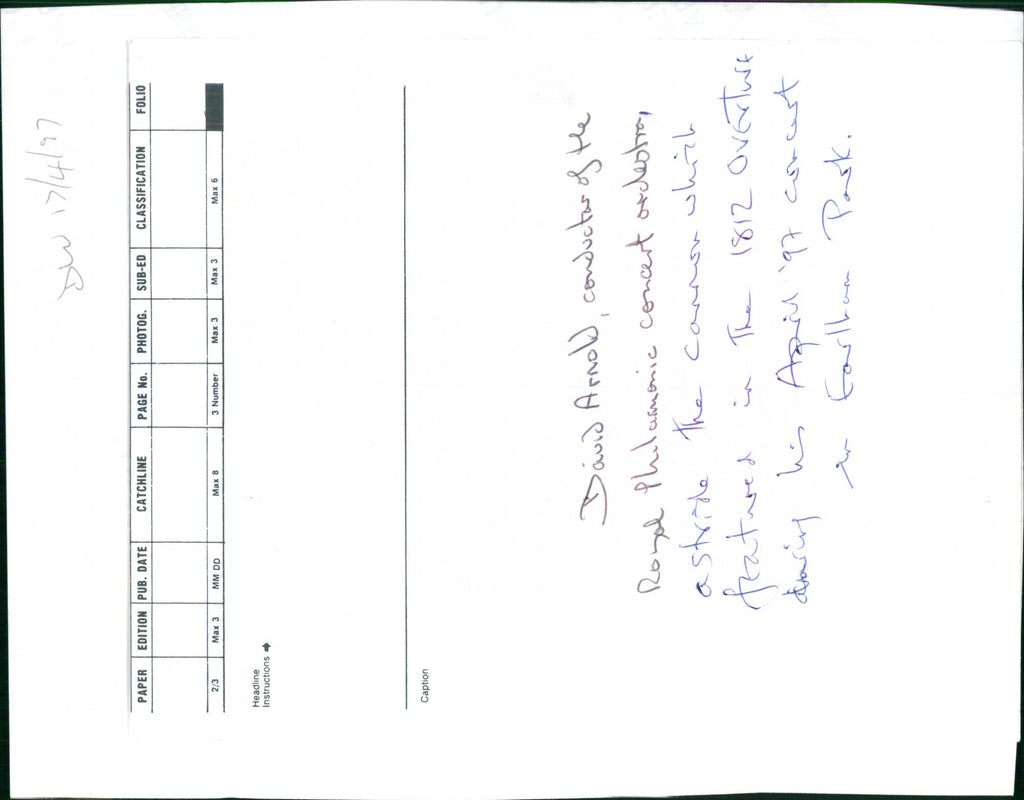 DW 17/4/97
PAPER EDITION PUB. DATE CATCHLINE PAGE No. PHOTOG. SUB-ED CLASSIFICATION FOLIO
2/3 Max 3 MM DD Max 8 3 Number Max 3 Max 3 Max 6
Headline
Instructions
Caption
David Arnold, conductor of the
Royal Philamonic concert orchestra,
astride the cannon which
featured in the 1812 OVERTURE
during his April '97 concert
in Earlham Park.